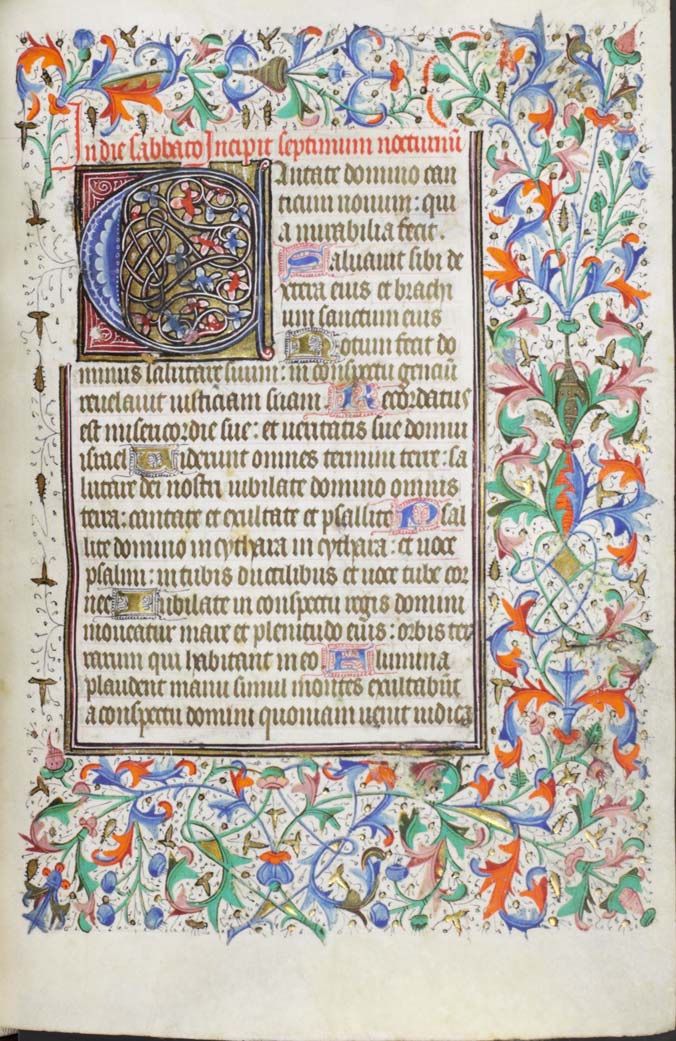 In die sabbato Incipit septimum nocturnū
Cantate domino can
ticum novum: qui
a mirabilia fecit.
Saluavit sibi de
xtera eius et brachi
um sanctum eius
Notum fecit do
minus salutare suum: in conspectu genciū
revelavit iusticiam suam. Recordatus
est misericordie sue: et veritatis sue domui
israel Viderunt omnes termini terre: sa
lutare dei nostri iubilate domino omnis
terra: cantate et exultate et psallite Psal
lite domino in cythara in cythara: et voce
psalmi: in tubis ductilibus et voce tube cor
nee Iubilate in conspectu regis domini
moveatur mare et plenitudo eius: orbis ter
rarum qui habitant in eo Flumina
plaudent manu simul montes exultabūt
a conspectu domini quoniam venit iudica